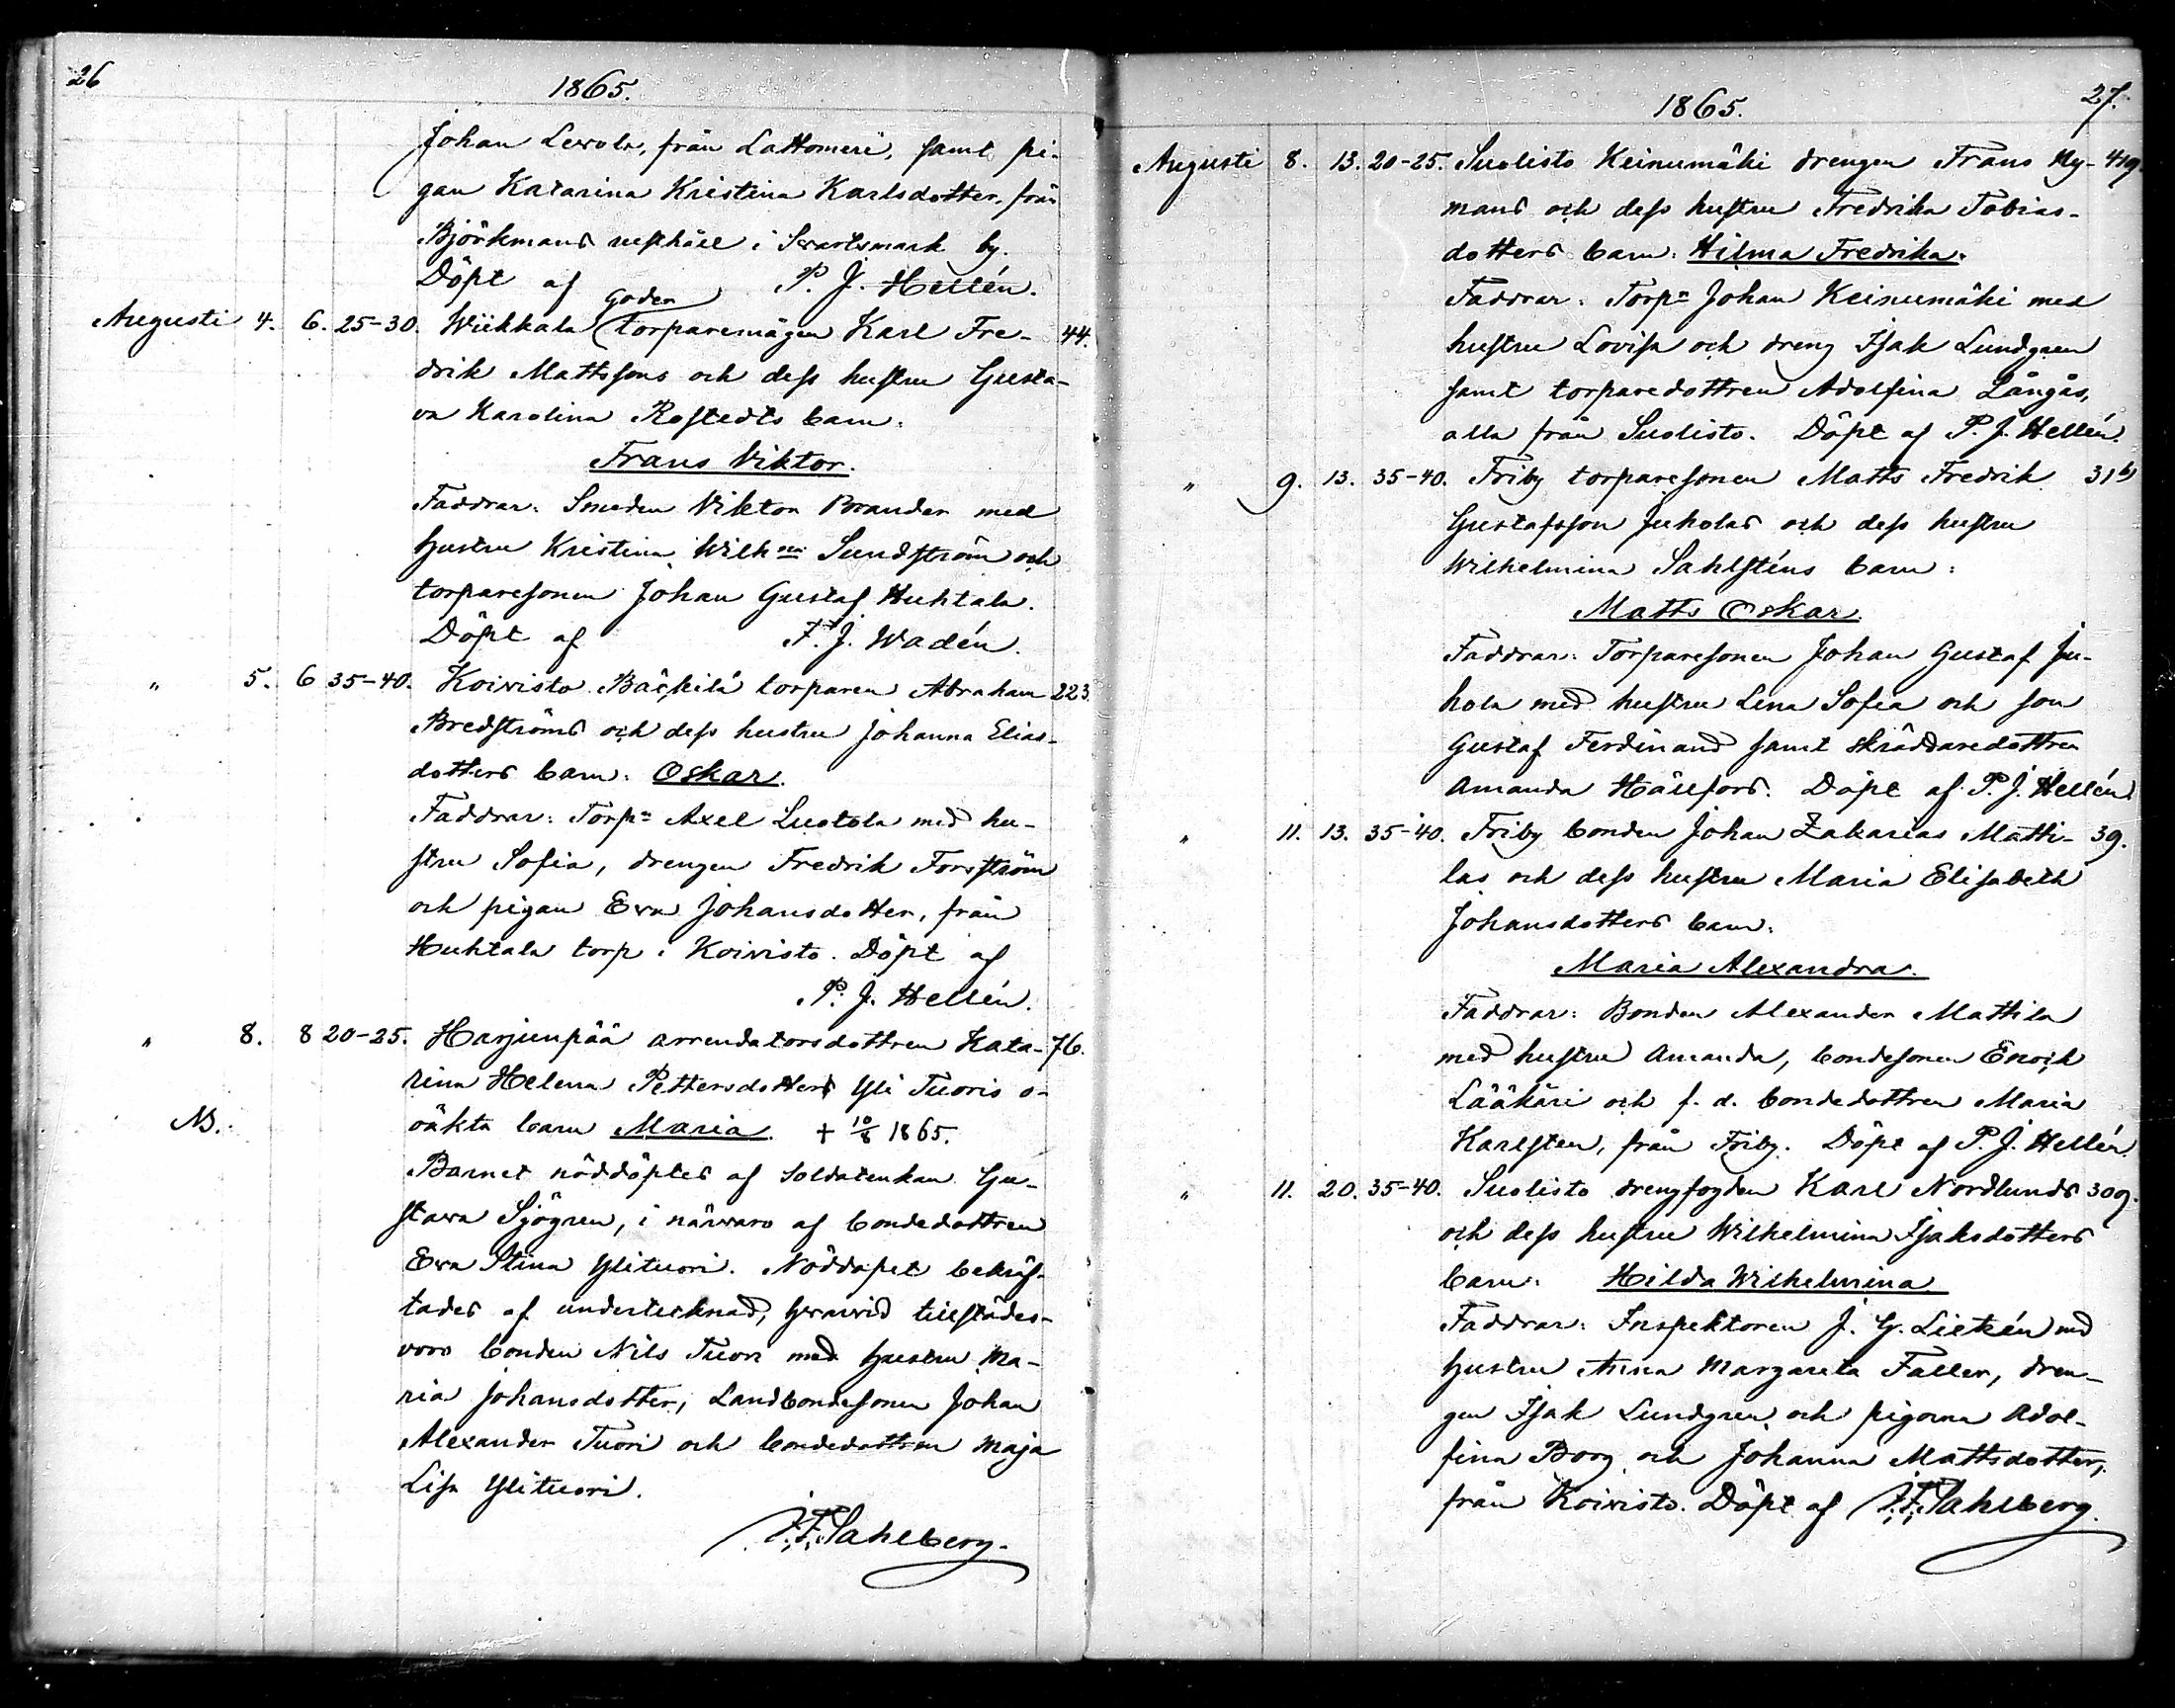 26
1865.
Johan Lewola, från Lattomeri, samt pi-
gan Katarina Kristina Karlsdotter, från
Björkmans rusthåll i Swartsmark by.
Döpt af P. J. Hellén.
Goden
Augusti 4. 6. 25-30. Wiikkala torparemågen Karl Fre- 44.
drik Mattssons och dess hustru Gusta-
va Karolina Rostedts barn:
Frans Viktor.
Faddrar: Smeden Viktor Brander med
hustru Kristina Wilhna Sundström och
torparesonen Johan Gustaf Huhtala.
Döpt af F. J. Wadén.
" 5. 6 35-40. Koivisto Bäckilä torparen Abraham 223.
Bredströms och dess hustru Johanna Elias-
dotters barn: Oskar.
Faddrar: Torp= Axel Luotola med hu-
stru Sofia, drengen Fredrik Forsström
och pigan Eva Johansdotter, från
Huhtala torp i Koivisto. Döpt af
P. J. Hellén.
" 8. 8 20-25. Harjunpää arrendatorsdottren Kata- 76.
rina Helena Pettersdotters Yli Tuoris o-
NB. oäkta barn Maria. + 10/8 1865.
Barnet nöddöptes af soldatenkan Gu-
stava Sjögren, i närwaro af bondedottren
Eva Stina Ylituori. Nöddopet bekräf-
tades af undertecknad, hwarwid tillstädes-
voro bonden Nils Tuori med hustru Ma-
ria Johansdotter, Landbondesonen Johan
Alexander Tuori och bondedottren Maja
Lisa Ylituori.
J. F. Sahlberg.
27.
1865.
Augusti 8. 13. 20-25. Suolisto Keinumäki drengen Frans Ny- 419.
mans och dess hustru Fredrika Tobias-
dotters barn: Hilma Fredrika.
Faddrar: Torp= Johan Keinumäki med
hustru Lovisa och dreng Isak Lundgren
samt torparedottren Adolfina Långås,
alla från Suolisto. Döpt af P. J. Hellén.
" 9. 13. 35-40. Friby torparesonen Matts Fredrik 31b
Gustafsson Juholas och dess hustru
Wilhelmina Sahlsténs barn:
Matts Oskar.
Faddrar: Torparesonen Johan Gustaf Ju-
hola med hustru Lena Sofia och son
Gustaf Ferdinand samt skräddaredottren
Amanda Hällfors. Döpt af P. J. Hellén.
" 11. 13. 35-40. Friby bonden Johan Zakarias Matti- 39.
las och dess hustru Maria Elisabeth
Johansdotters barn:
Maria Alexandra.
Faddrar: Bonden Alexander Mattila
med hustru Amanda, bondesonen Enoch
Lääkäri och f. d. bondedottren Maria
Karlsten, från Friby. Döpt af P. J. Hellén.
" 11. 20. 35-40. Suolisto drengfogden Karl Nordlunds 309.
och dess hustru Wilhelmina Isaksdotters
barn: Hilda Wilhelmina.
Faddrar: Inspektoren J. G. Lietzén med
hustru Anna Margareta Faller, dren-
gen Isak Lundgren och pigorna Adol-
fina Borg och Johanna Mattsdotter,
från Koivisto. Döpt af J. F. Sahlberg.